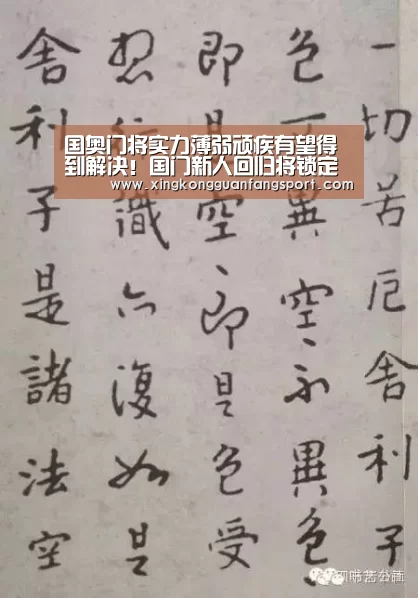 国奥门将实力薄弱顽疾有望得
到解决！国门新人回归将锁定
www.xingkongguanfangsport.com
一切苦厄舍利子
色不異空、不異色
即是空、即是色受
想行識亦復如是
舍利子是諸法空